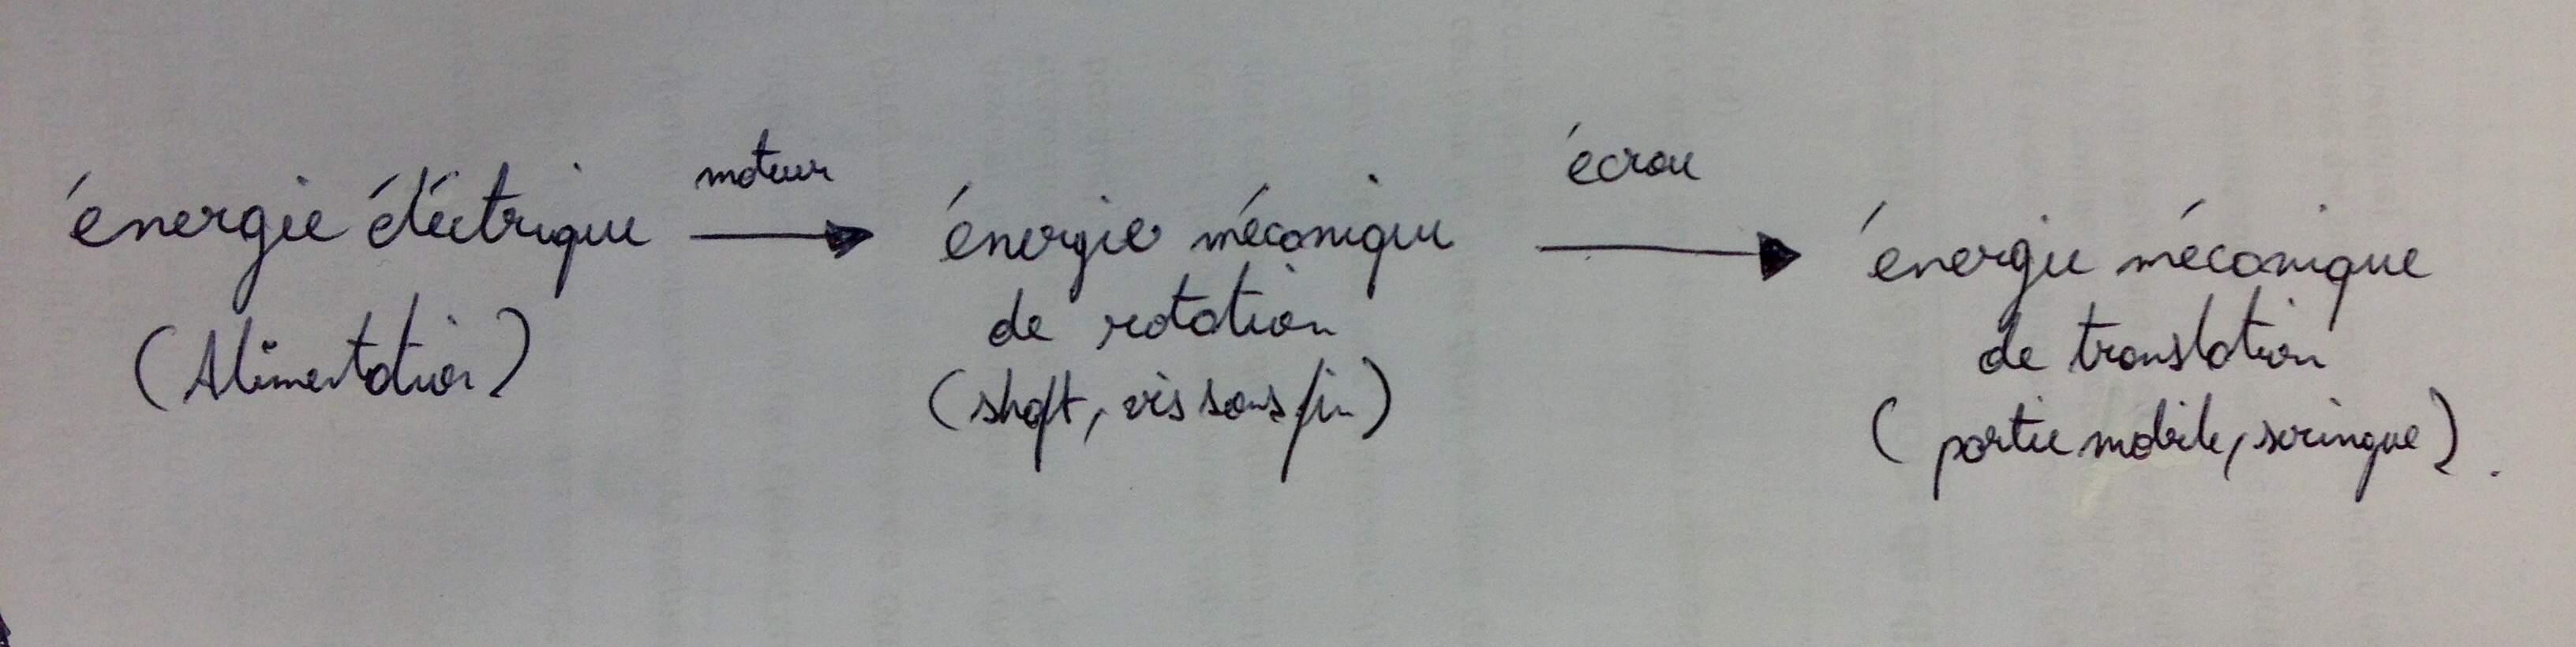 énergie éléctrique
(Alimentation)
moteur
énergie mécanique
de rotation
(shaft, vis sans fin)
écrou
énergie mécanique
de translation
(partie mobile, seringue).